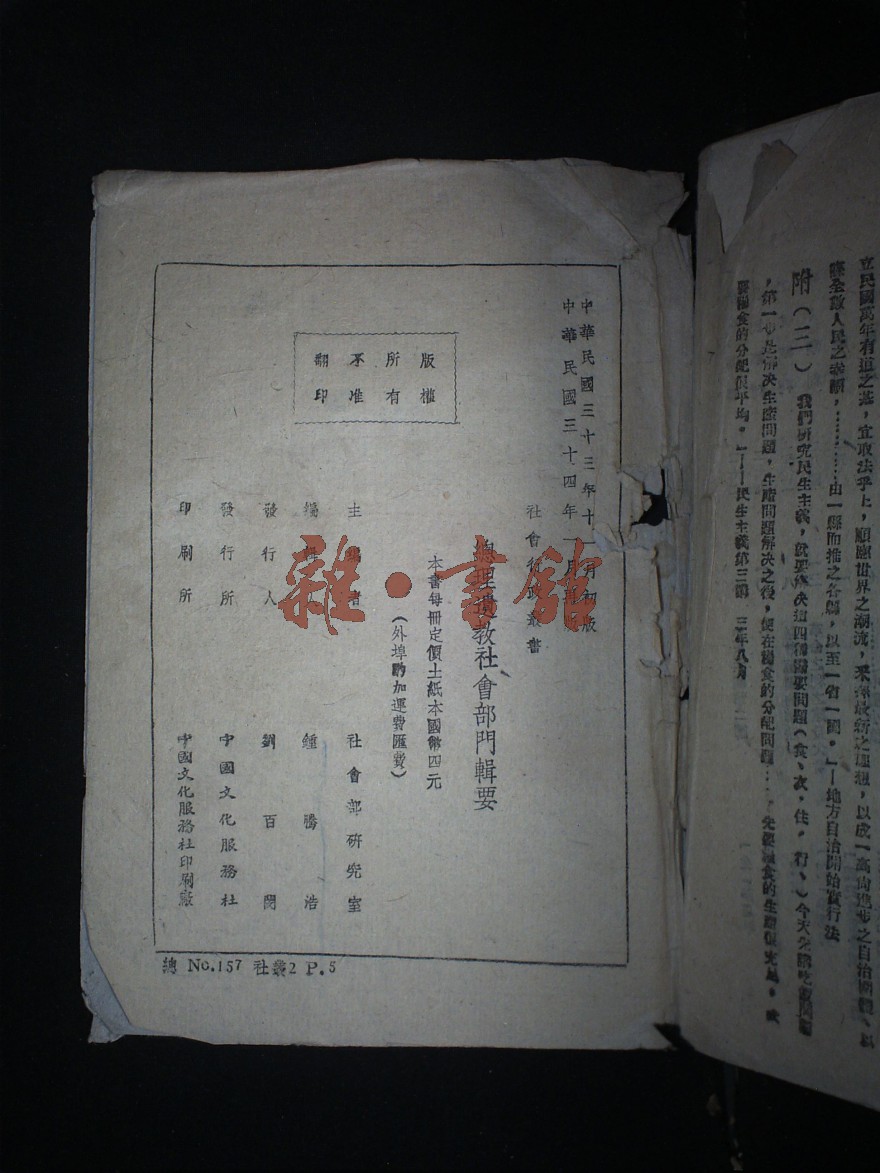 立民國萬年有道之基，宜取法乎上，順應世界之潮流，采擇最新之理想，以成一高尚進步之自治團體，以
全數人民之幸願，…………由一縣而推之各縣，以至一省一國。」—地方自治開始實行法
附（三）　我們研究民生主義，就要解決這四種需要問題（食、衣、住、行、）今天先講吃飯問題
，第一步是解決生產問題，生產問題解決之後，便在糧食的分配問題……
糧食的分配很平均。」——民生主義第三講
中華民國三十三年十一月初版
中華民國三十四年一月
社會行政叢書
總理遺教社會部門輯要
本書每冊定價土紙本國幣四元
（外埠酌加運費匯費）
主編者　社會部研究室
編輯　鍾騰浩
發行人　劉百閔
發行所　中國文化服務社
印刷所　中國文化服務社印刷廠
版權
所有
不准
翻印
總 No.157 社叢2 P.5
雜·書館